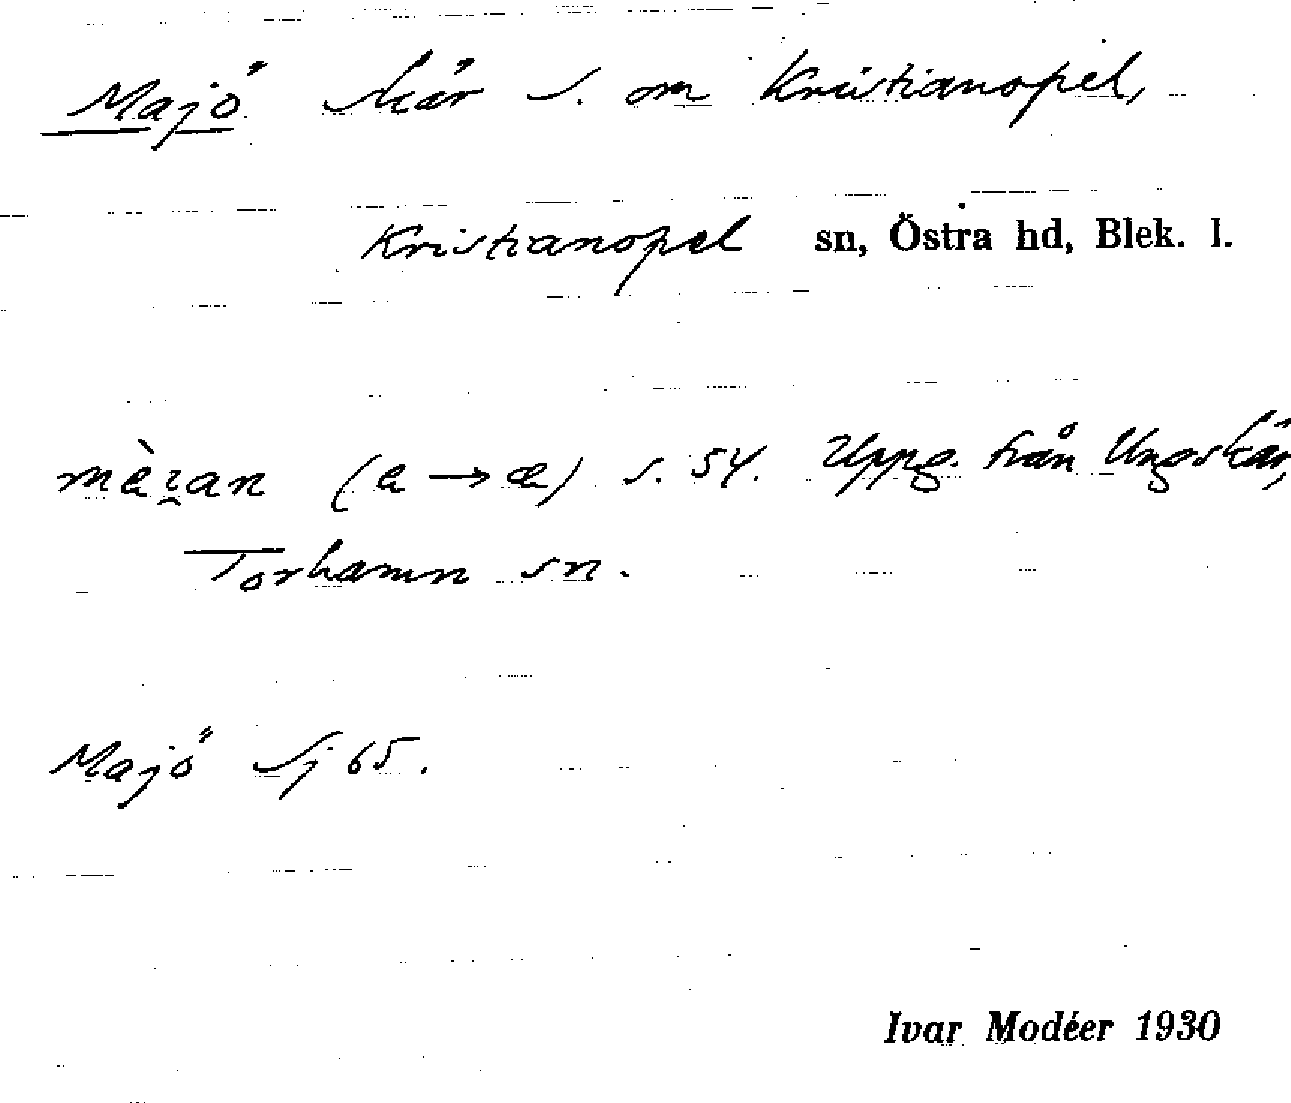 Majö skär s. om Kristianopel,
Kristianopel sn, Östra hd, Blek. l.
(a → æ) s. 54. Uppg. från Ungskär,
Torhamn sn.
Majö Sj 65.
Ivar Modéer 1930